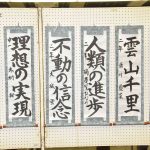 雲山千里
人類の進歩
不動の信念
理想の実現